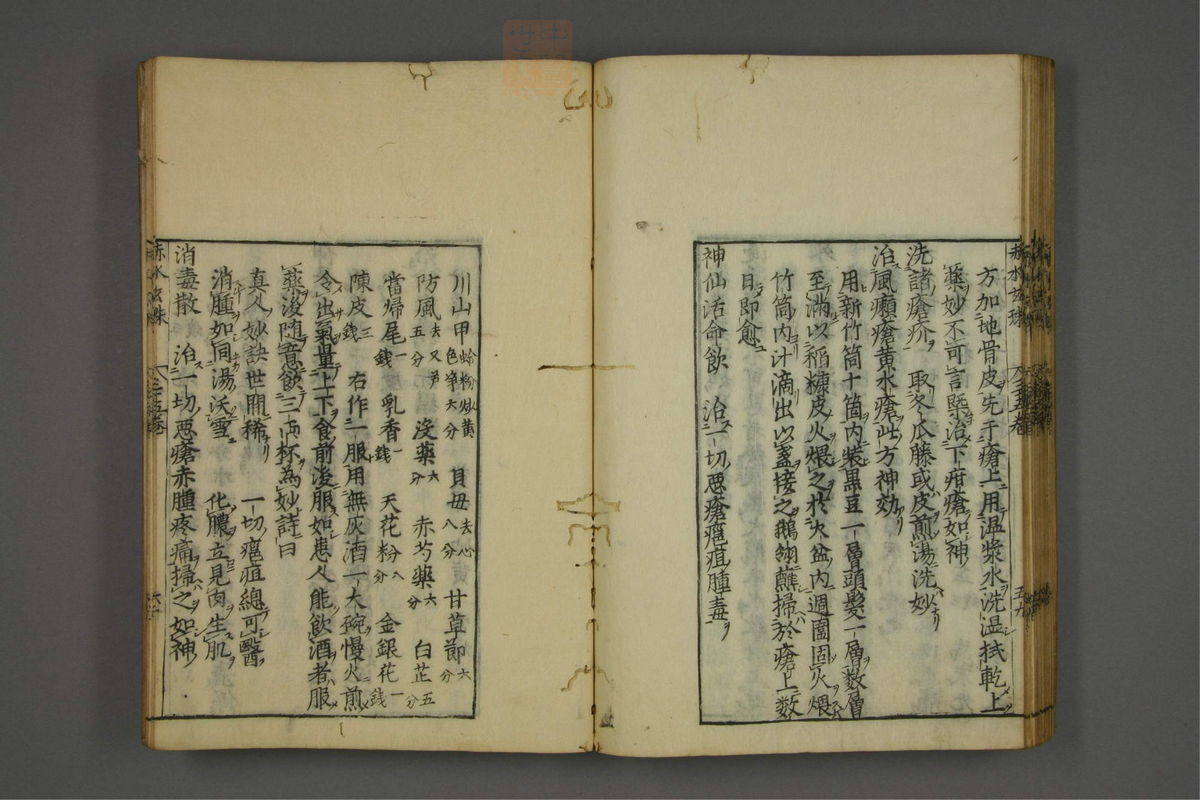 方加地骨皮先于瘡上用温漿水洗温拭乾上
藥妙不可言槩治下疳瘡如神
洗諸瘡疥　取冬瓜藤或皮煎湯洗妙
治風癩瘡黄水瘡此方神効
用新竹筒十箇内装黒豆一層頭髪一層数層
至滿以稲糠皮火煨之於火盆内週圍固火煨
竹筒内汁滴出以盞接之鵝翎蘸掃於瘡上数
日即愈
神仙活命飲　治一切悪瘡癰疽腫毒
川山甲 蛤粉炒黄色 六分　貝母 去心 八分　甘草節 六分
防風 五分　没藥 六分　赤芍藥 六分　白芷 五分
當歸尾 一錢　乳香 一錢　天花粉 八分　金銀花 一錢
陳皮 三錢　右作一服用無灰酒一大碗慢火煎
令出氣量上下食前後服如患人能飲酒者服
藥後随意飲三両杯為妙詩曰
真人妙訣世間稀　一切癰疽總可醫
消腫如同湯沃雪　化膿立見肉生肌
消毒散　治一切悪瘡赤腫疼痛掃之如神
赤水玄珠